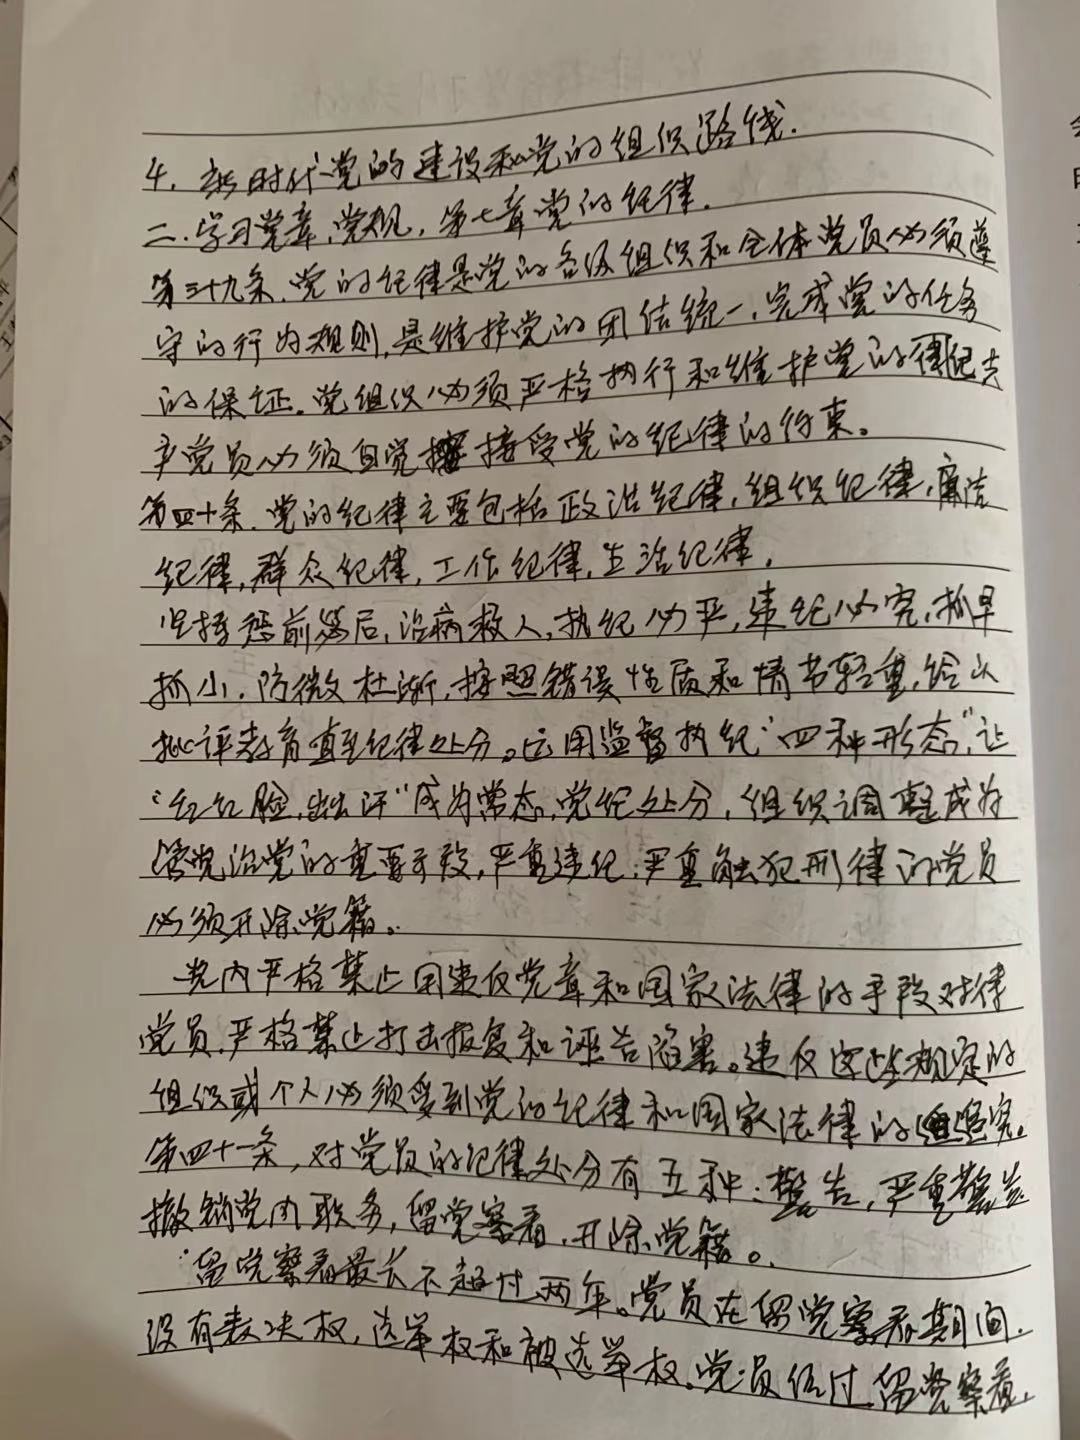 4. 新时代党的建设和党的组织路线.
二.学习党章、党规,第七章党的纪律.
第三十九条.党的纪律是党的各级组织和全体党员必须遵
守的行为规则,是维护党的团结统一、完成党的任务
的保证。党组织必须严格执行和维护党的律纪共
产党员必须自觉接受党的纪律的约束。
第四十条.党的纪律主要包括政治纪律,组织纪律,廉洁
纪律,群众纪律,工作纪律,生活纪律,
坚持惩前毖后,治病救人,执纪必严,违纪必究,抓早
抓小.防微杜渐,按照错误性质和情节轻重,给以
批评教育直至纪律处分。运用监督执纪“四种形态”,让
“红红脸,出出汗”成为常态,党纪处分,组织调整成为
管党治党的重要手段,严重违纪、严重触犯刑律的党员
必须开除党籍。
党内严格禁止用违反党章和国家法律的手段对待
党员.严格禁止打击报复和诬告陷害。违反这些规定的
组织或个人必须受到党的纪律和国家法律的追究。
第四十一条,对党员的纪律处分有五种:警告,严重警告
撤销党内职务,留党察看,开除党籍。
留党察看最长不超过两年。党员在留党察看期间.
没有表决权,选举权和被选举权。党员经过留党察看,